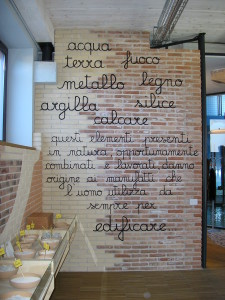 acqua
terra fuoco
metallo legno
argilla silice
calcare
questi elementi presenti
in natura, opportunamente
combinati e lavorati, danno
origine ai manufatti che
l'uomo utilizza da
sempre per
edificare